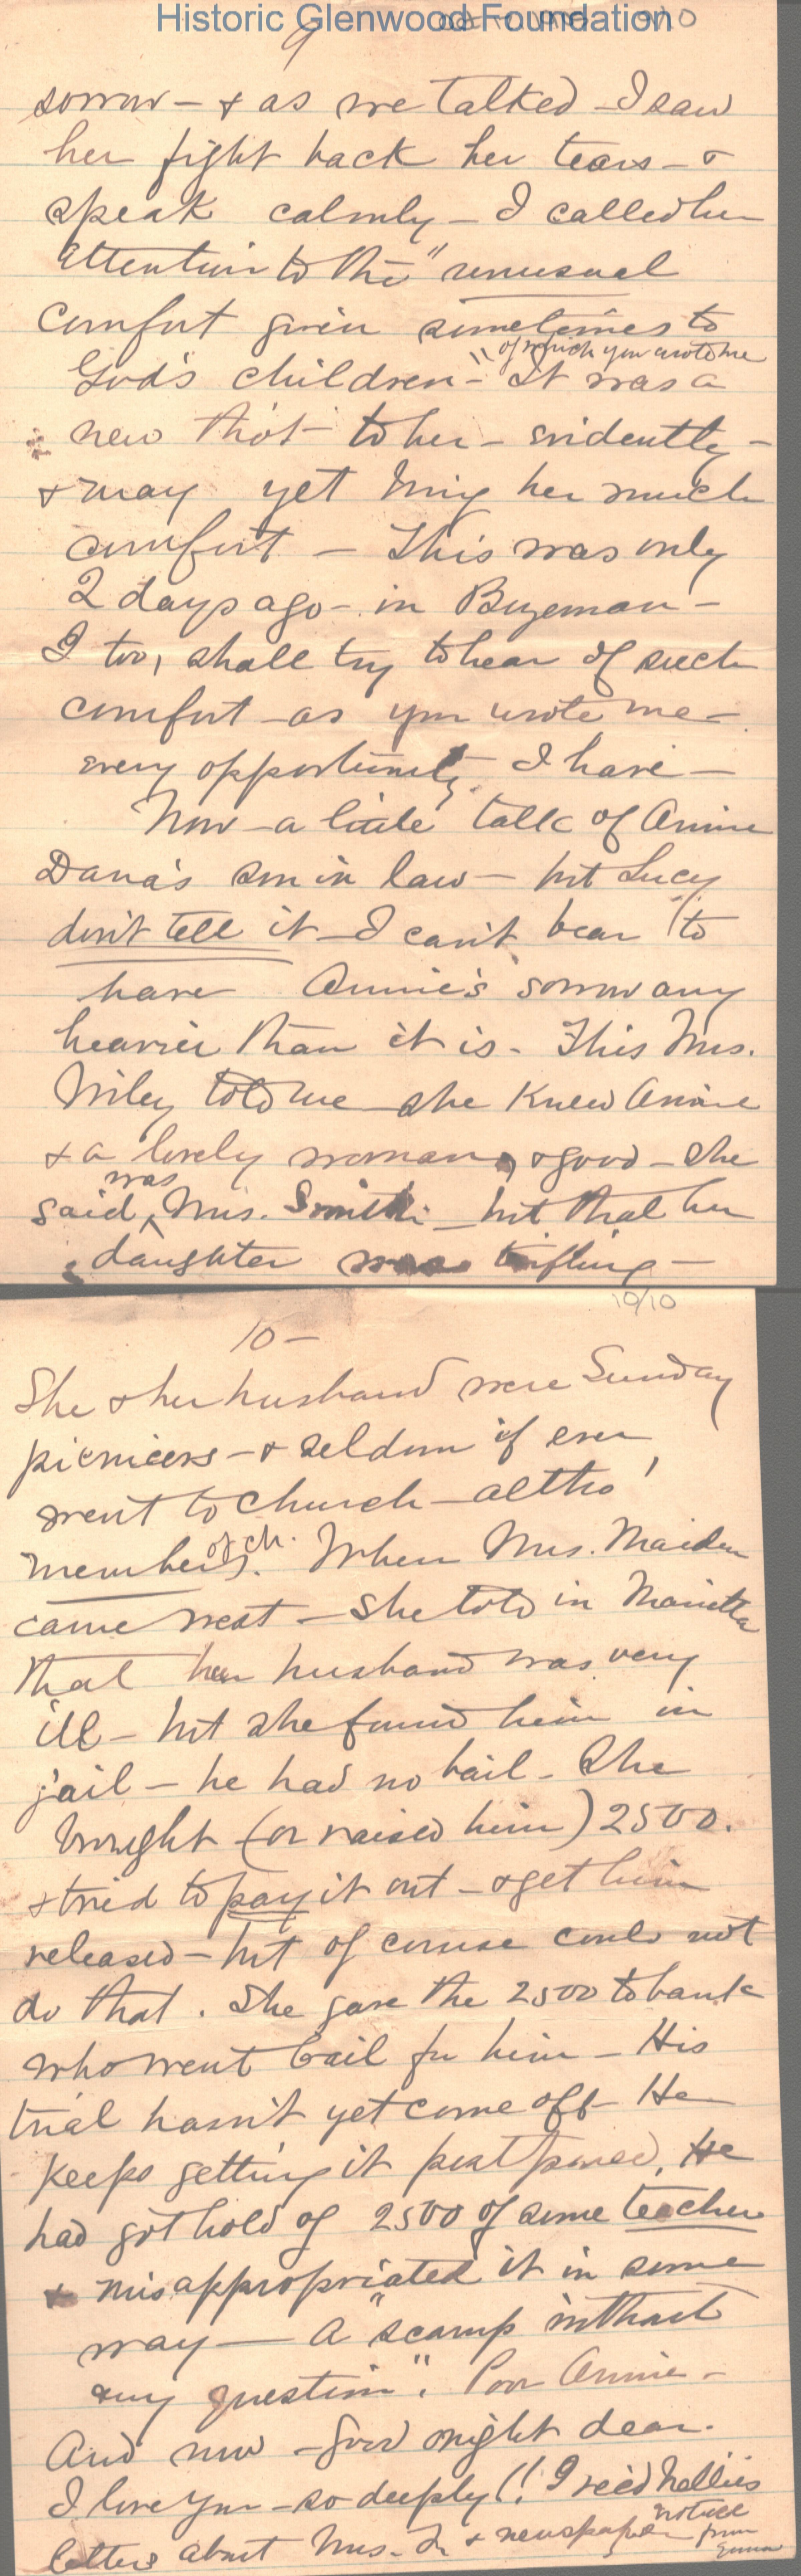 Historic Glenwood Foundation
9
sorrow - & as we talked - I saw
her fight back her tears - &
speak calmly - I called her
attention to the "unusual
comfort given sometimes to
of which you wrote me
God's children -" It was a
new tho't - to her - evidently -
& may yet bring her much
comfort - This was only
2 days ago - in Bozeman -
I too, shall try to hear of such
comfort - as you wrote me -
every opportunity I have -
Now - a little talk of Annie
Dana's son in law - but Lucy
don't tell it - I can't bear to
have Annie's sorrow any
heavier than it is - This Mrs.
Wiley told me she knew Annie
& a lovely woman, & good - she
was
said, Mrs. Smith - but that her
daughter was trifling -
10/10
10 -
She & her husband were Sunday
picnicers - & seldom if ever
went to church - altho'
of ch.
members. When Mrs. Maiden
came west - she told in Marietta
that her husband was very
ill - but she found him in
jail - he had no bail - She
brought (or raised him) 2500.
& tried to pay it out - & get him
released - but of course could not
do that. She gave the 2500 to bank
who went bail for him - His
trial hasn't yet come off - He
keeps getting it postponed. He
had got hold of 2500 of some teacher
& misappropriated it in some
way - A "scamp without
any question". Poor Annie -
And now - good night dear.
I love you - so deeply!! I rec'd Nellie's
letters about Mrs. & newspaper notice from
Emma